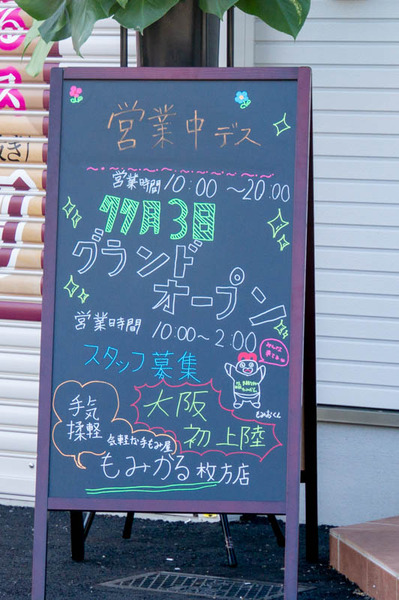 営業中デス
営業時間 10:00 ～20:00
11月3日
グランド
オープン
営業時間 10:00～2:00
スタッフ募集
手気
揉軽
大阪
初上陸
気軽な手もみ屋
もみかる 枚方店